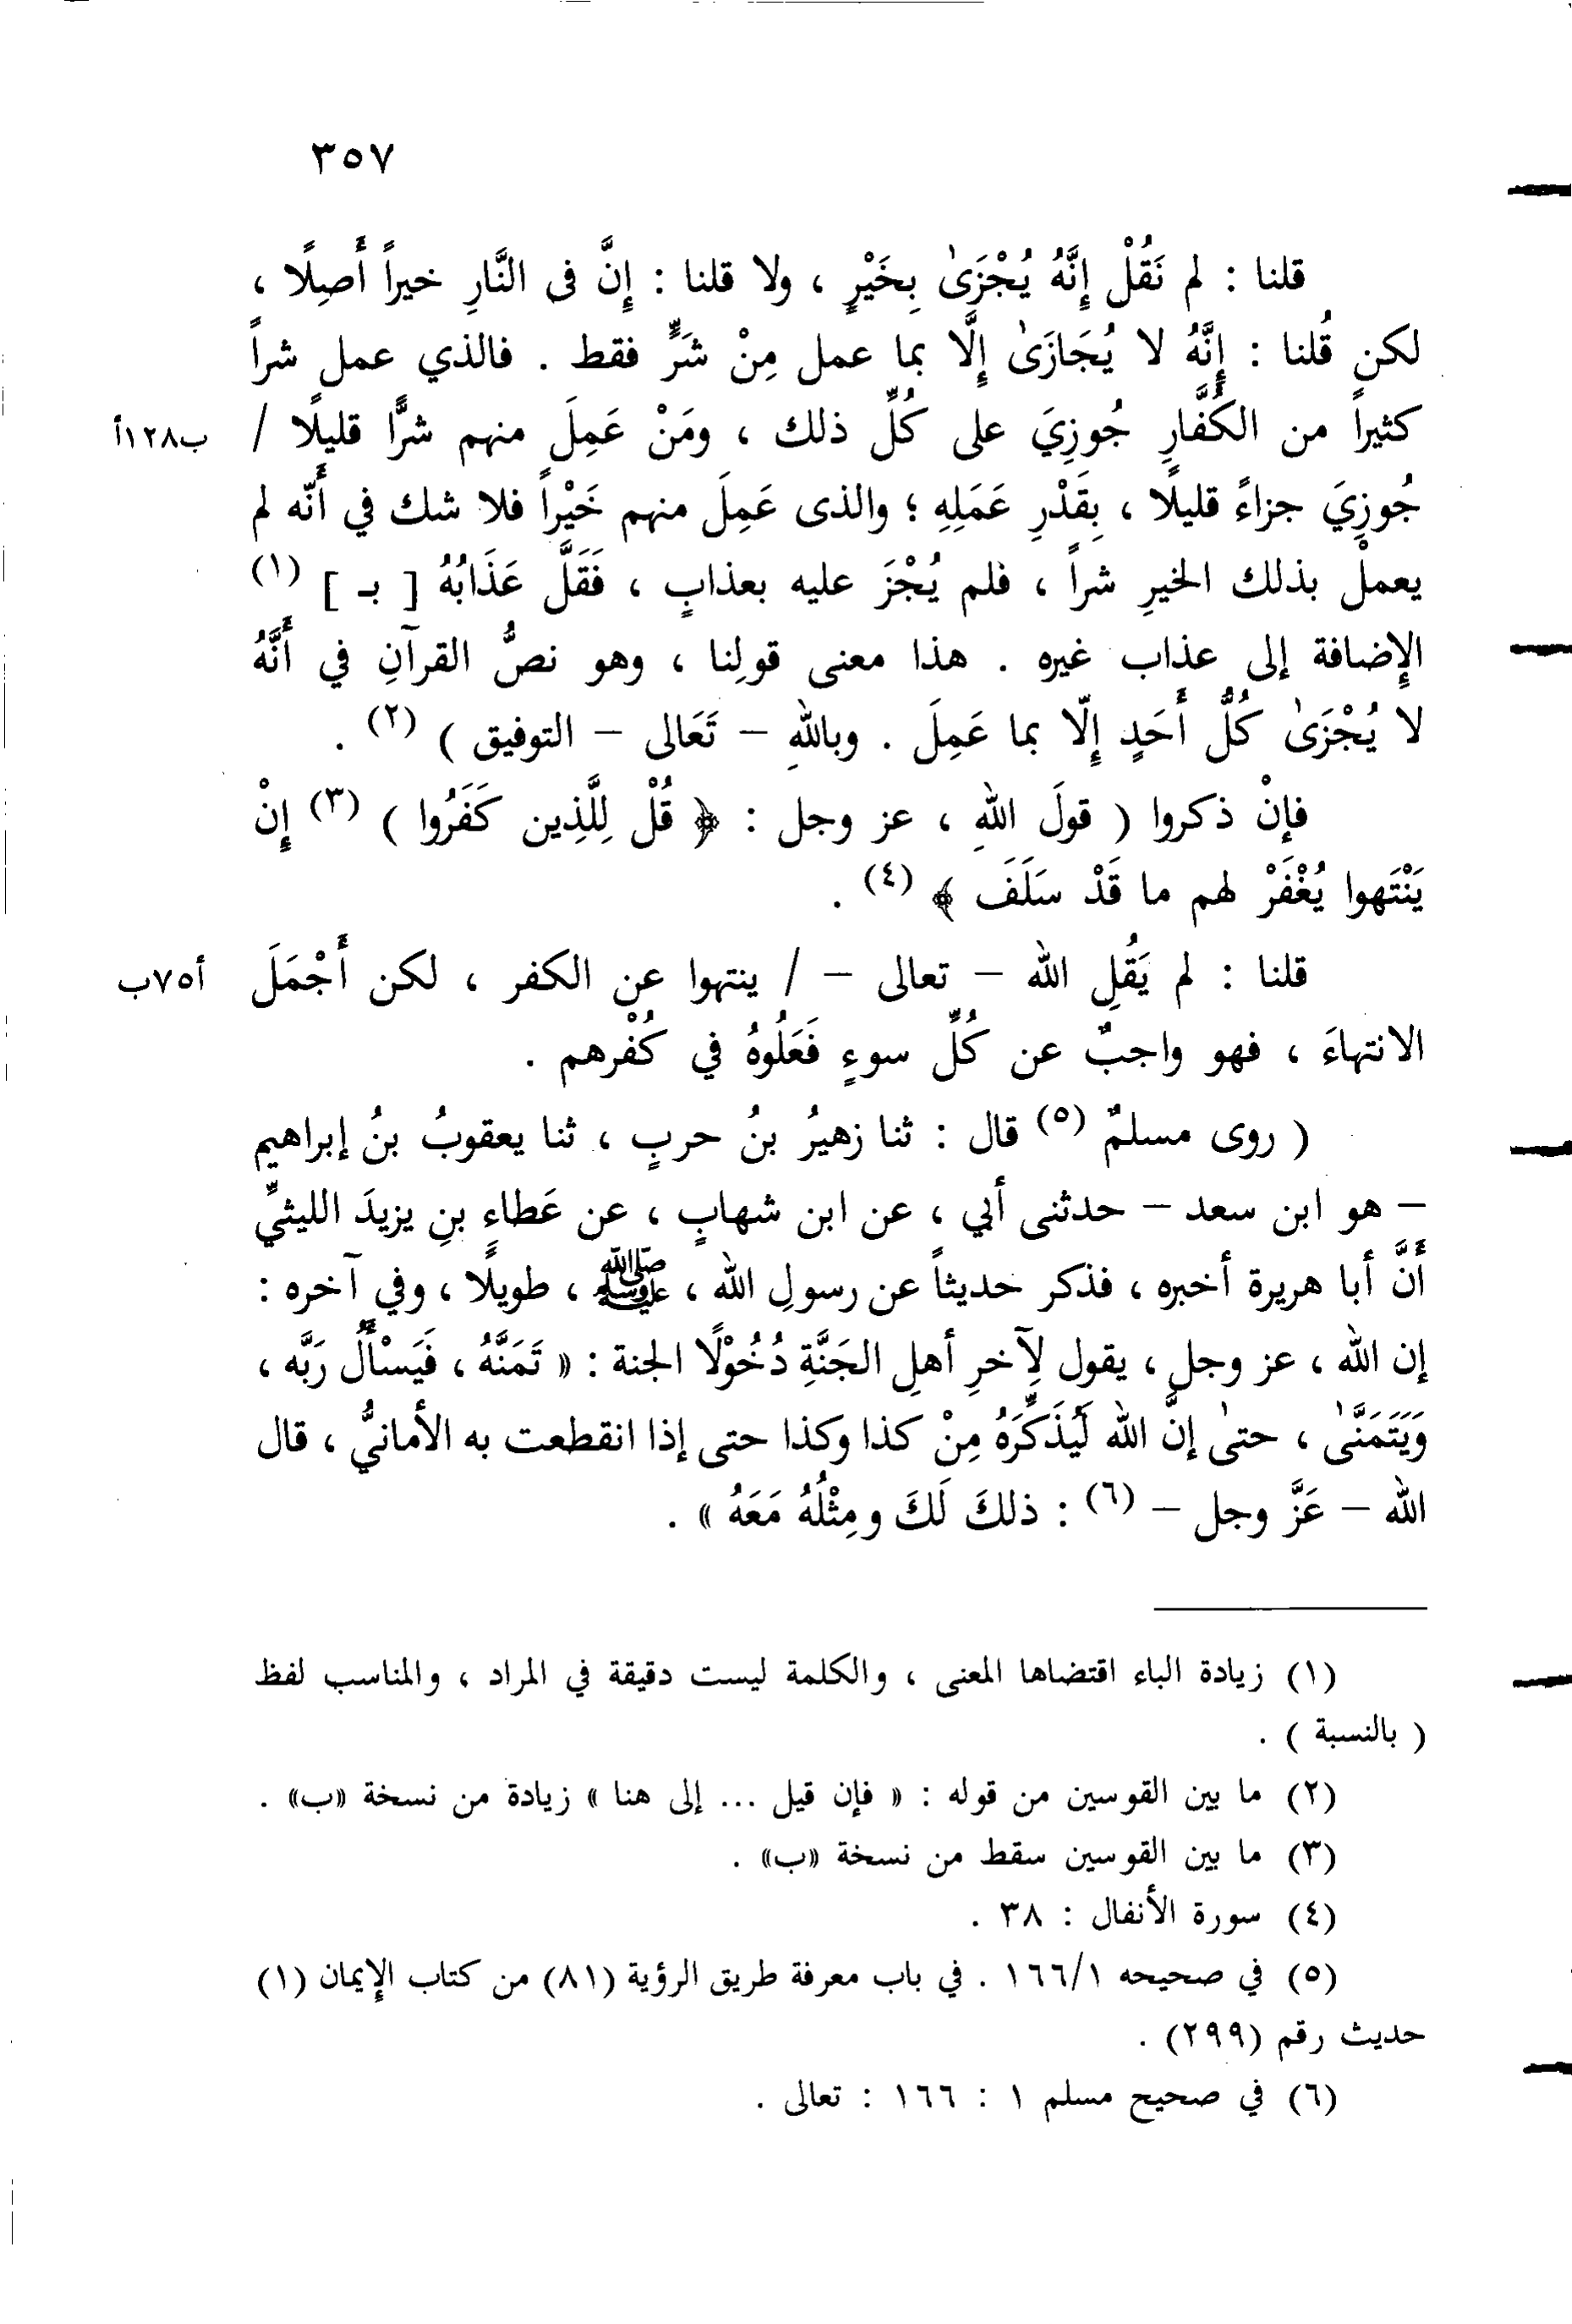 ٣٥٧
قلنا : لم نَقُلْ إِنَّهُ يُجْزَىٰ بِخَيْرٍ ، ولا قلنا : إِنَّ فى النَّارِ خيراً أَصِلًا ،
لكن قُلنا : إِنَّهُ لا يُجَازَىٰ إِلَّا بما عمل مِنْ شَرٍّ فقط . فالذي عمل شراً
كثيراً من الكُفَّارِ جُوزِيَ على كُلِّ ذلك ، ومَنْ عَمِلَ منهم شرًّا قليلًا / ب١٢٨أ
جُوزِيَ جزاءً قليلًا ، بِقَدْرِ عَمَلِهِ ؛ والذى عَمِلَ منهم خَيْراً فلا شك في أَنّه لم
يعملْ بذلك الخيرِ شراً ، فلم يُجْزَ عليه بعذابٍ ، فَقَلَّ عَذَابُهُ [ بـ ] (١)
الإِضافة إلى عذاب غيره . هذا معنى قولِنا ، وهو نصُّ القرآنِ في أَنَّهُ
لا يُجْزَىٰ كُلُّ أَحَدٍ إِلّا بما عَمِلَ . وباللهِ – تَعَالى – التوفيق ) (٢) .
فإنْ ذكروا ( قولَ اللهِ ، عز وجل : ﴿ قُلْ لِلَّذِين كَفَرُوا ) (٣) إِنْ
يَنْتَهوا يُغْفَرْ لهم ما قَدْ سَلَفَ ﴾ (٤) .
قلنا : لم يَقُلِ الله – تعالى – / ينتهوا عن الكفر ، لكن أَجْمَلَ أ٧٥ب
الانتهاءَ ، فهو واجبٌ عن كُلِّ سوءٍ فَعَلُوهُ في كُفْرهم .
( روى مسلمٌ (٥) قال : ثنا زهيرُ بنُ حربٍ ، ثنا يعقوبُ بنُ إبراهيم
– هو ابن سعد – حدثنى أبي ، عن ابن شهابٍ ، عن عَطاءِ بنِ يزيدَ الليثيِّ
أَنَّ أبا هريرة أخبره ، فذكر حديثاً عن رسولِ الله ، ﷺ ، طويلًا ، وفي آخره :
إن الله ، عز وجل ، يقول لِآخرِ أهلِ الجَنَّةِ دُخُوْلًا الجنة : « تَمَنَّهُ ، فَيَسْأَلُ رَبَّه ،
وَيَتَمَنَّىٰ ، حتىٰ إنَّ الله لَيُذَكِّرَهُ مِنْ كذا وكذا حتى إذا انقطعت به الأمانيُّ ، قال
الله – عَزَّ وجل – (٦) : ذلكَ لَكَ ومِثْلُهُ مَعَهُ » .
(١) زيادة الباء اقتضاها المعنى ، والكلمة ليست دقيقة في المراد ، والمناسب لفظ
( بالنسبة ) .
(٢) ما بين القوسين من قوله : « فإن قيل ... إلى هنا » زيادة من نسخة «ب» .
(٣) ما بين القوسين سقط من نسخة «ب» .
(٤) سورة الأنفال : ٣٨ .
(٥) في صحيحه ١٦٦/١ . في باب معرفة طريق الرؤية (٨١) من كتاب الإيمان (١)
حديث رقم (٢٩٩) .
(٦) في صحيح مسلم ١ : ١٦٦ : تعالى .